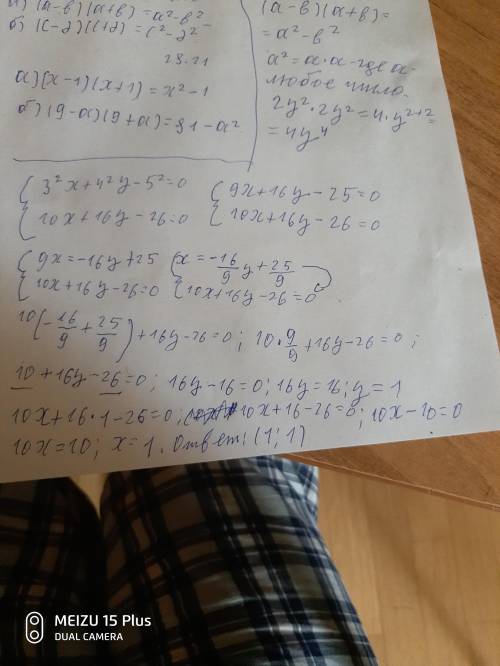 а) (a-в)(a+в)=a²-в²
б) (c-2)(c+2)=c²-2²
28.21
а) (x-1)(x+1)=x²-1
б) (9-a)(9+a)=81-a²
(a-в)(a+в)=
=a²-в²
a²=a·a-где a-
любое число.
2y²·2y²=4·y²⁺²=
=4y⁴
{3²x+4²y-5²=0 {9x+16y-25=0
{10x+16y-26=0 {10x+16y-26=0
{9x=-16y+25 {x=-16/9y+25/9
{10x+16y-26=0 {10x+16y-26=0
10(-16/9+25/9)+16y-26=0; 10·9/9+16y-26=0;
10+16y-26=0; 16y-16=0; 16y=16; y=1
10x+16·1-26=0; 10x+16-26=0; 10x-10=0
10x=10; x=1. Ответ: (1; 1)
MEIZU 15 Plus
DUAL CAMERA